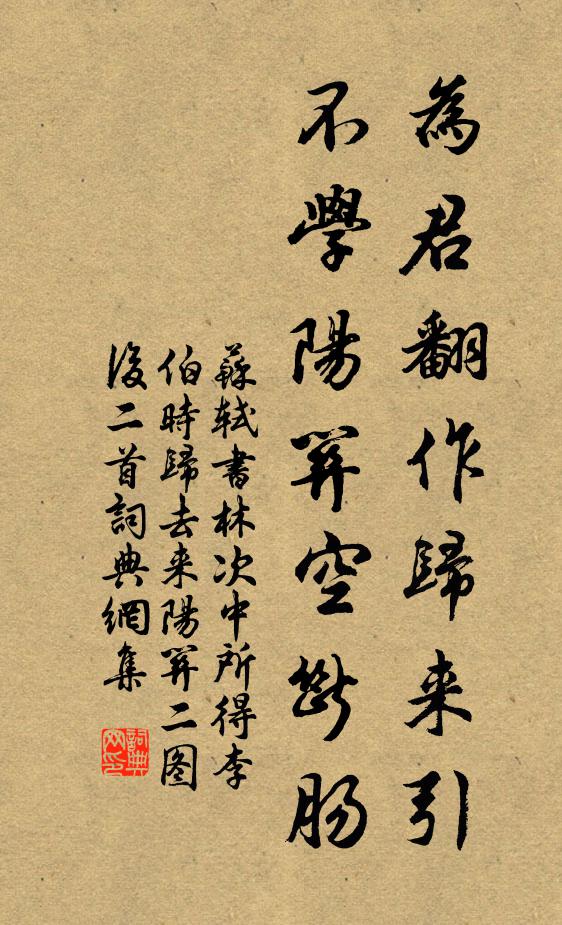 為君翻作歸来引
不學陽關空斷腸
蘇軾書林次中所得李
伯時歸去来陽關二图
後二首詞典網集
詞典
网印